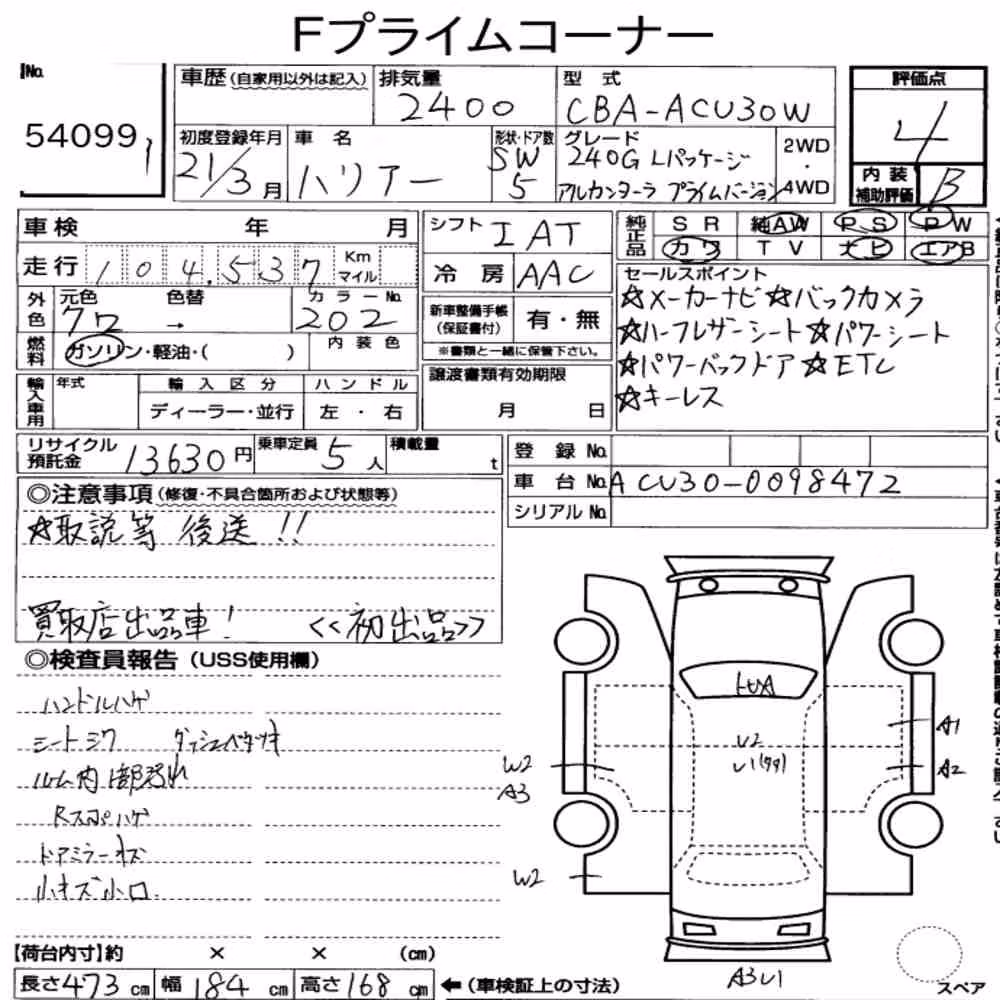 Fプライムコーナー
No.
54099
車歴 (自家用以外は記入)
排気量
2400
型 式
CBA-ACU30W
評価点
4
内装
補助評価
B
初度登録年月
21/3月
車 名
ハリアー
形状・ドア数
SW
5
グレード
240G Lパッケージ
アルカンターラ プライムバージョン
2WD
・
4WD
車検 年 月
走行 104,537 Km マイル
シフト IAT
冷房 AAC
純正品
SR 純AW PS PW
カワ TV ナビ エアB
外色
元色 色替
クロ →
カラーNo.
202
燃料
ガソリン・軽油・( )
内装色
新車整備手帳
(保証書付)
有・無
※書類と一緒に保管下さい。
セールスポイント
☆メーカーナビ☆バックカメラ
☆ハーフレザーシート☆パワーシート
☆パワーバックドア☆ETC
☆キーレス
輸入車用
年式
輸入区分
ディーラー・並行
ハンドル
左 ・ 右
譲渡書類有効期限
月 日
リサイクル
預託金
13630円
乗車定員 5人
積載量 t
登録No.
車台No. ACU30-0098472
シリアルNo.
◎注意事項 (修復・不具合箇所および状態等)
☆取説等 後送!!
買取店出品車! <<初出品>>
◎検査員報告 (USS使用欄)
ハンドルハゲ
シートシワ ダッシュベタツキ
ルーム内部汚れ
Rスポハゲ
ドアミラーキズ
小キズ小凹
トビA
U2
A1
W2
A3
A2
W2
A3U1
スペア
【荷台内寸】約 × × (cm)
長さ473cm 幅184cm 高さ168cm ←(車検証上の寸法)